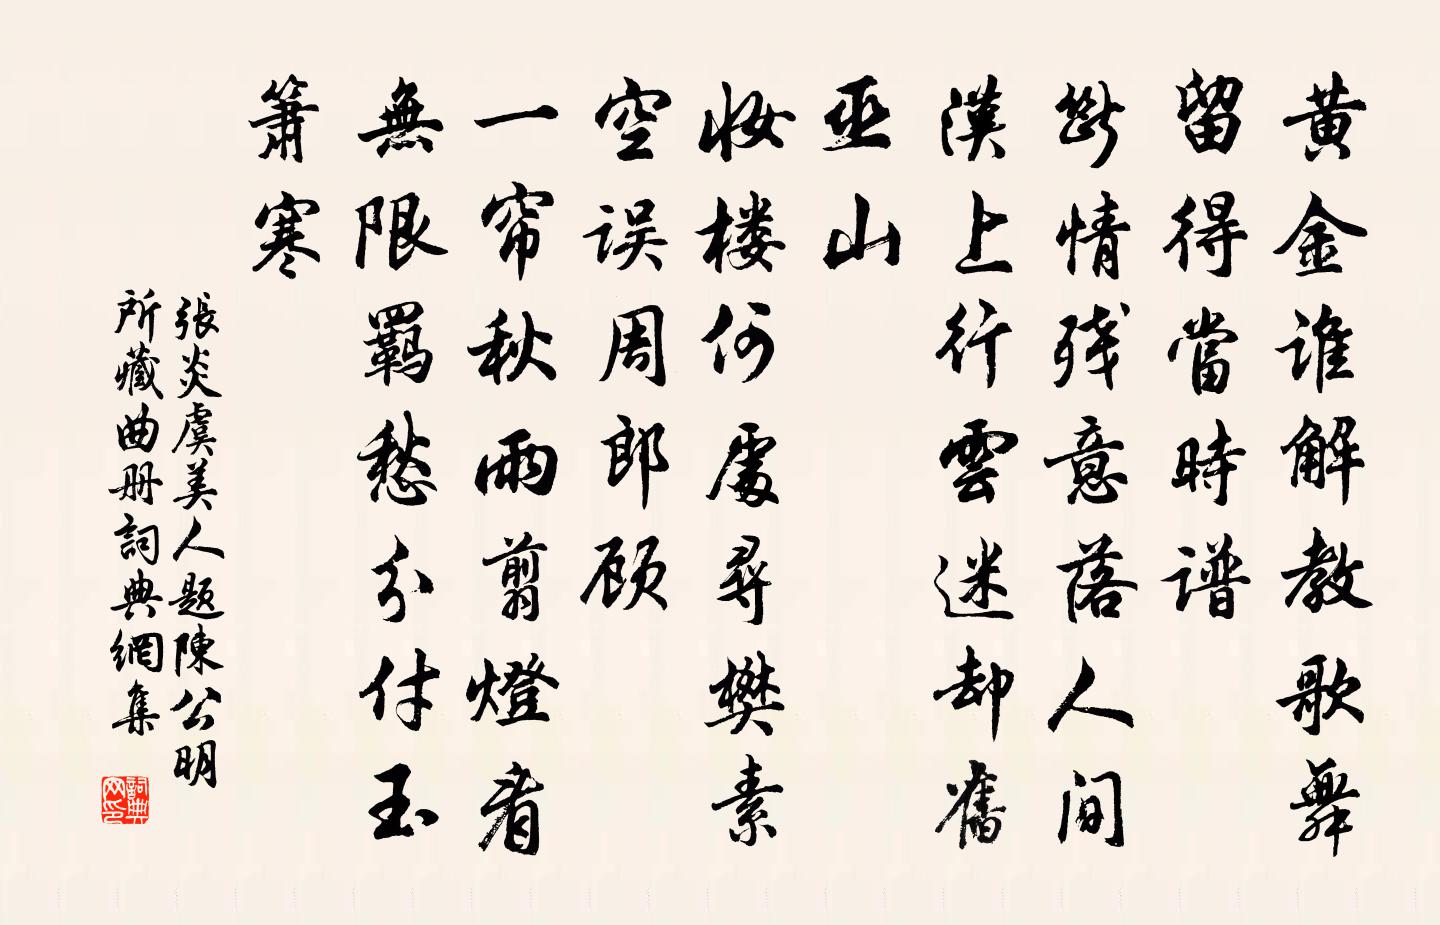 黄金誰解教歌舞
留得當時譜
斷情残意落人間
漢上行雲迷却舊
巫山
妝楼何處尋樊素
空误周郎顾
一帘秋雨剪燈看
無限羁愁分付玉
箫寒
張炎虞美人题陳公明
所藏曲册詞典網集
詞典
网印